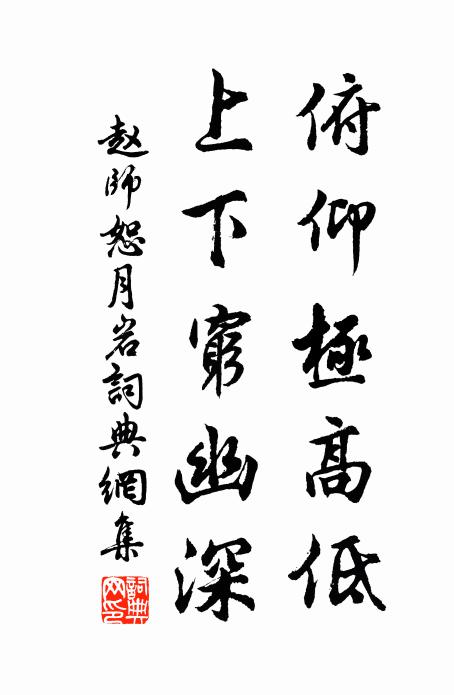 俯仰極高低
上下窮幽深
赵師恕月岩詞典網集
詞典
网印